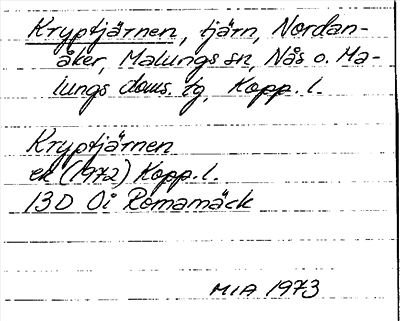 Kryptjärnen, tjärn, Nordan-
åker, Malungs sn, Nås o. Ma-
lungs doms. tg, Kopp. l.
Kryptjärnen
ek (1972) Kopp. l.
13D Oi Romamäck
MIA 1973